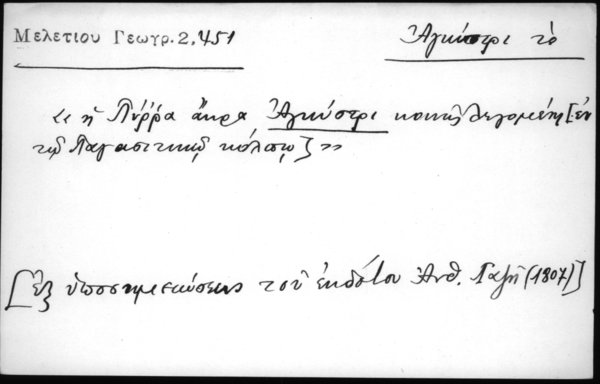 Μελετίου Γεωγρ. 2, 451
Ἀγκίστρι τὸ
« ἡ Πύῤῥα ἄκρα Ἀγκίστρι κοινῶς λεγομένη [ἐν
τῷ Παγασιτικῷ κόλπῳ] »
[ἐξ ὑποσημειώσεως τοῦ ἐκδότου Ἀνθ. Γαζῆ (1807)]